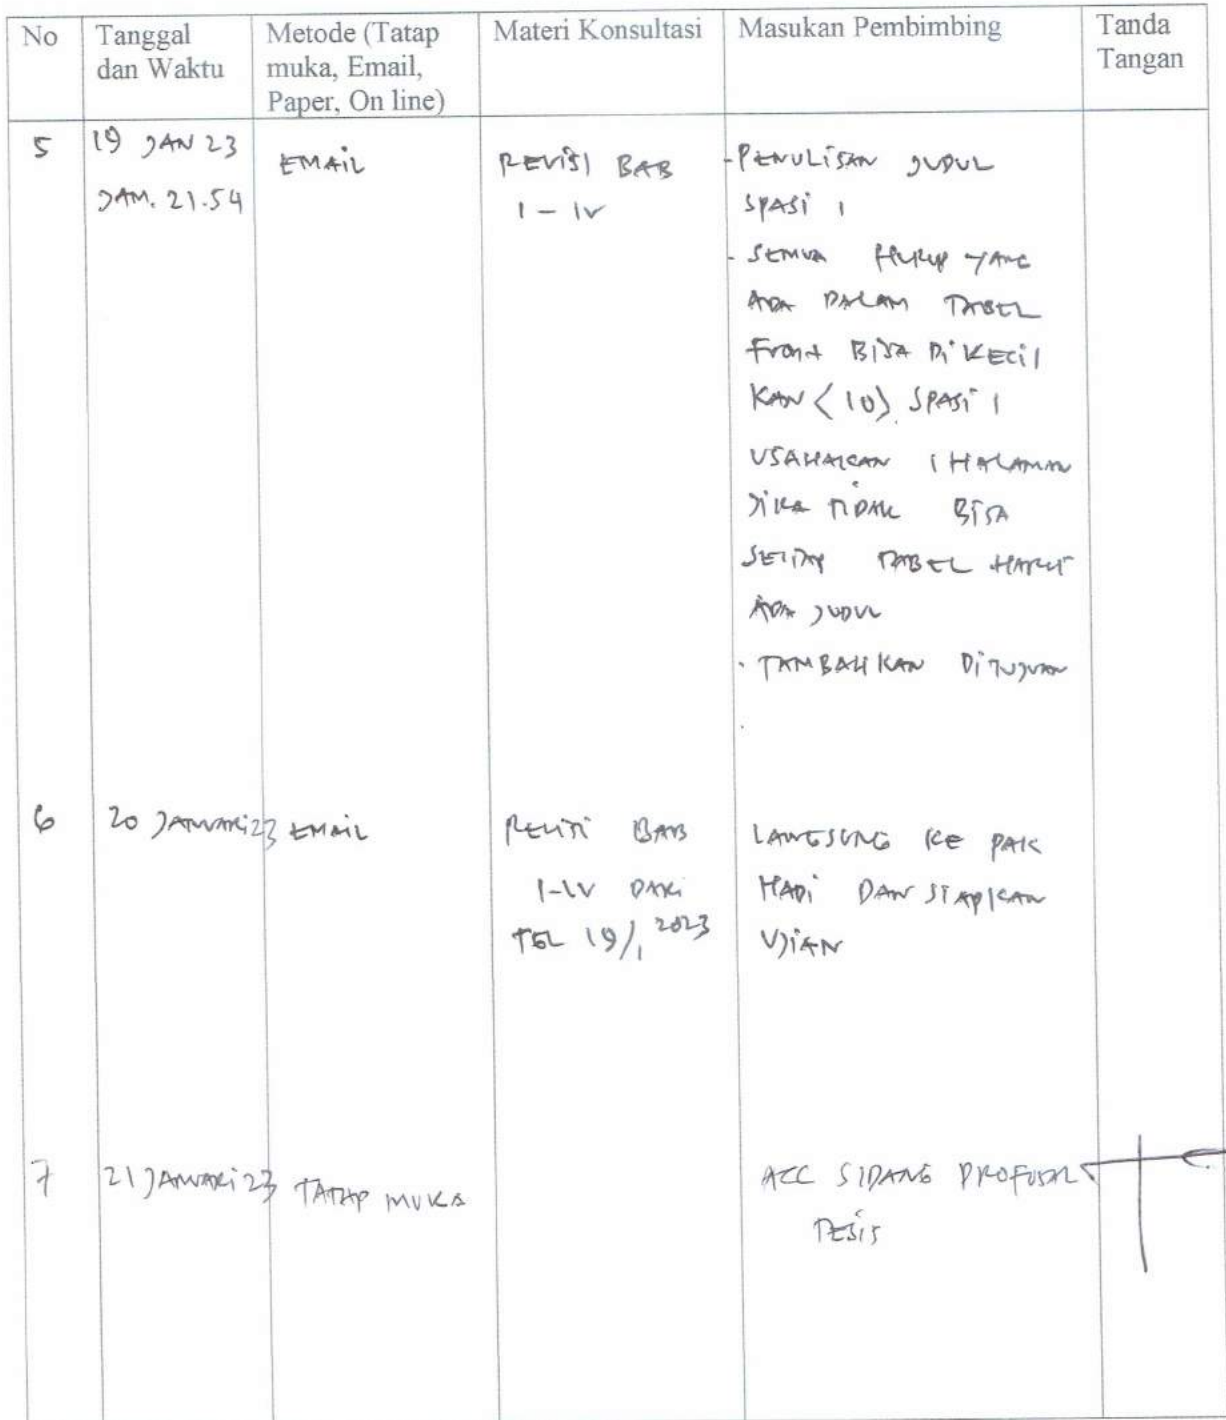 No
Tanggal
dan Waktu
Metode (Tatap
muka, Email,
Paper, On line)
Materi Konsultasi
Masukan Pembimbing
Tanda
Tangan
5
19 JAN 23
JAM. 21.54
EMAIL
REVISI BAB
I - IV
- PENULISAN JUDUL
SPASI 1
- SEMUA HURUP YANG
ADA DALAM TABEL
Front BISA DI KECIL
KAN (10) SPASI 1
USAHAKAN 1 HALAMAN
JIKA TIDAK BISA
SETIAP TABEL HARUS
ADA JUDUL
- TAMBAHKAN DITUJUAN
6
20 JANUARI 23
EMAIL
REVISI BAB
I-IV DARI
TGL 19/1 2023
LANGSUNG KE PAK
HADI DAN SIAPKAN
UJIAN
7
21 JANUARI 23
TATAP MUKA
ACC SIDANG PROPOSAL
TESIS